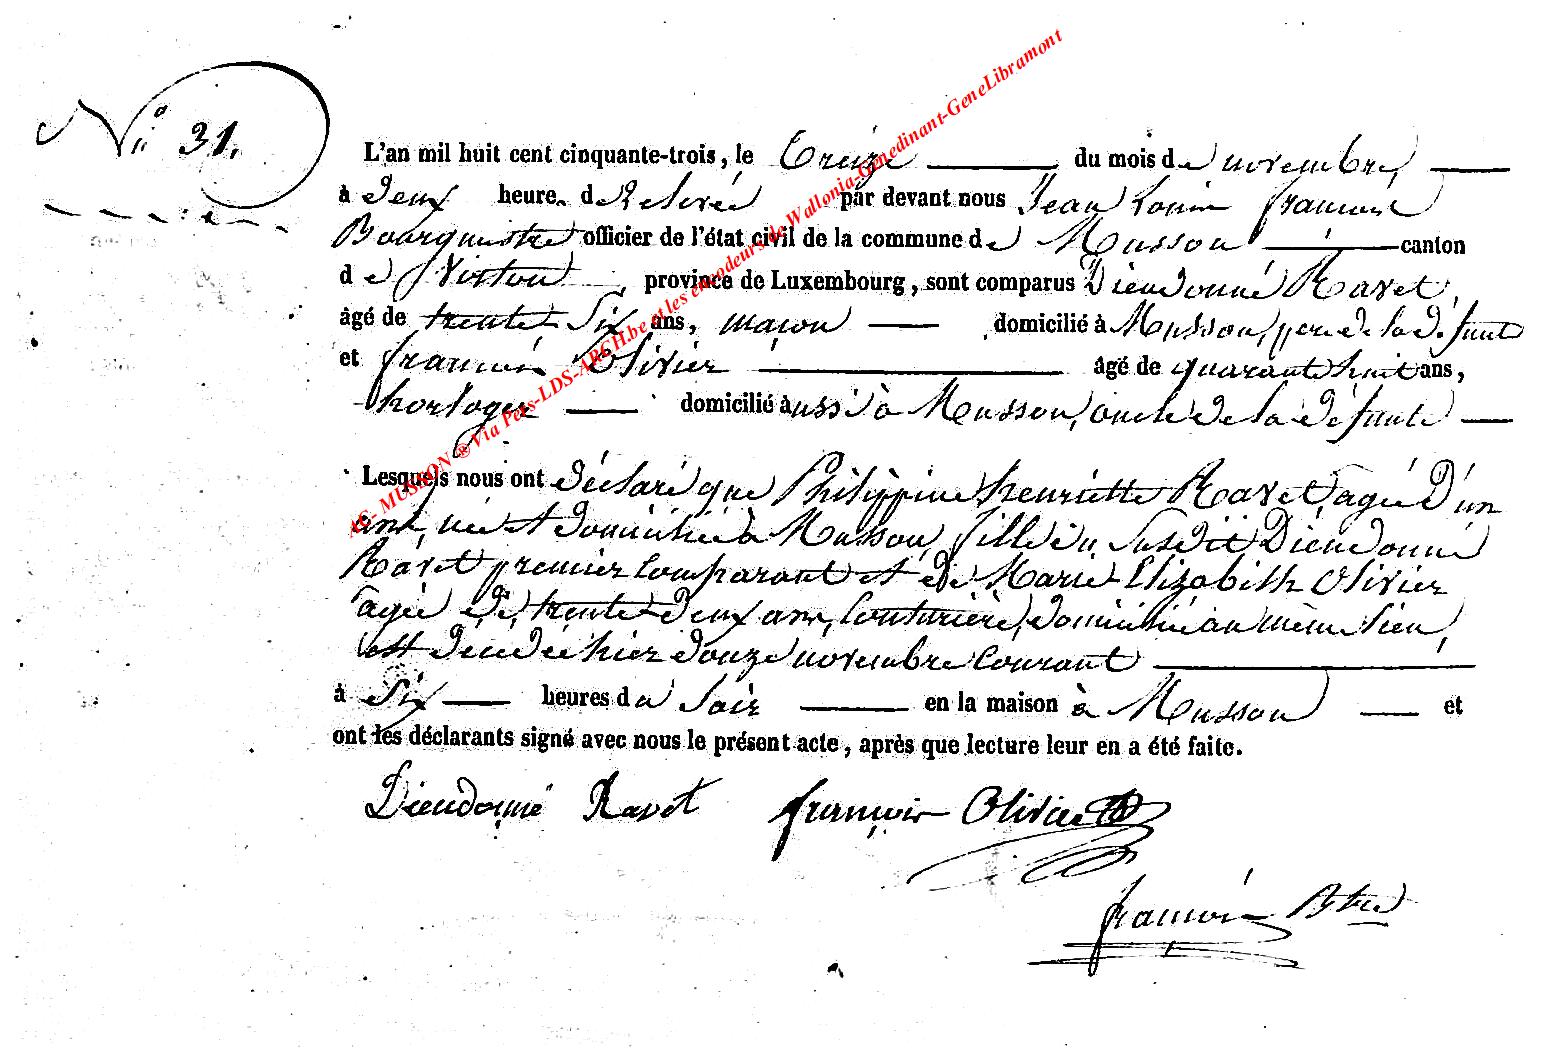 N° 31.
L'an mil huit cent cinquante-trois, le treize du mois de novembre
à deux heure. de relevée par devant nous Jean Louis françois
Bourgmestre officier de l'état civil de la commune de Musson canton
de Virton province de Luxembourg, sont comparus Dieudonné Ravet,
âgé de trente six ans, maçon domicilié à Musson, pere de la défunte
et françois Olivier âgé de quarante huit ans,
horloger domicilié aussi à Musson, oncle de la défunte
Lesquels nous ont déclaré que Philippine henriette Ravet, agée d'un
ans, née et domiciliée à Musson, fille du susdit Dieudonné
Ravet premier comparant et de Marie Elizabeth Olivier
agée de trente deux ans, couturière, domiciliée au même lieu,
est decedée hier douze novembre courant
à six heures du soir en la maison à Musson et
ont les déclarants signé avec nous le présent acte, après que lecture leur en a été faite.
Dieudonné Ravet françois Olivier
françois Btre
AC- MUSSON ® Via Pers-LDS-ARCH.be et les encodeurs de Wallonia-Genedinant-GeneLibramont